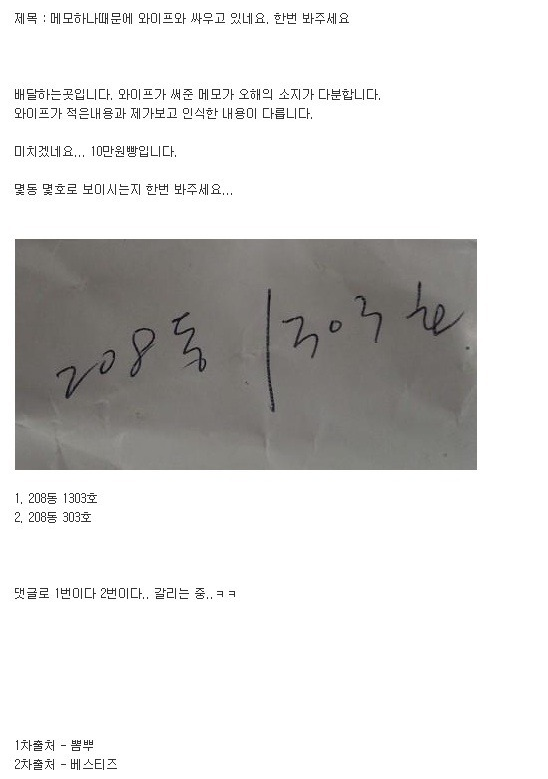 제목 : 메모하나때문에 와이프와 싸우고 있네요. 한번 봐주세요
배달하는곳입니다. 와이프가 써준 메모가 오해의 소지가 다분합니다.
와이프가 적은내용과 제가보고 인식한 내용이 다릅니다.
미치겠네요... 10만원빵입니다.
몇동 몇호로 보이시는지 한번 봐주세요...
208동 | 303호
1. 208동 1303호
2. 208동 303호
댓글로 1번이다 2번이다.. 갈리는 중..ㅋㅋ
1차출처 - 뽐뿌
2차출처 - 베스티즈